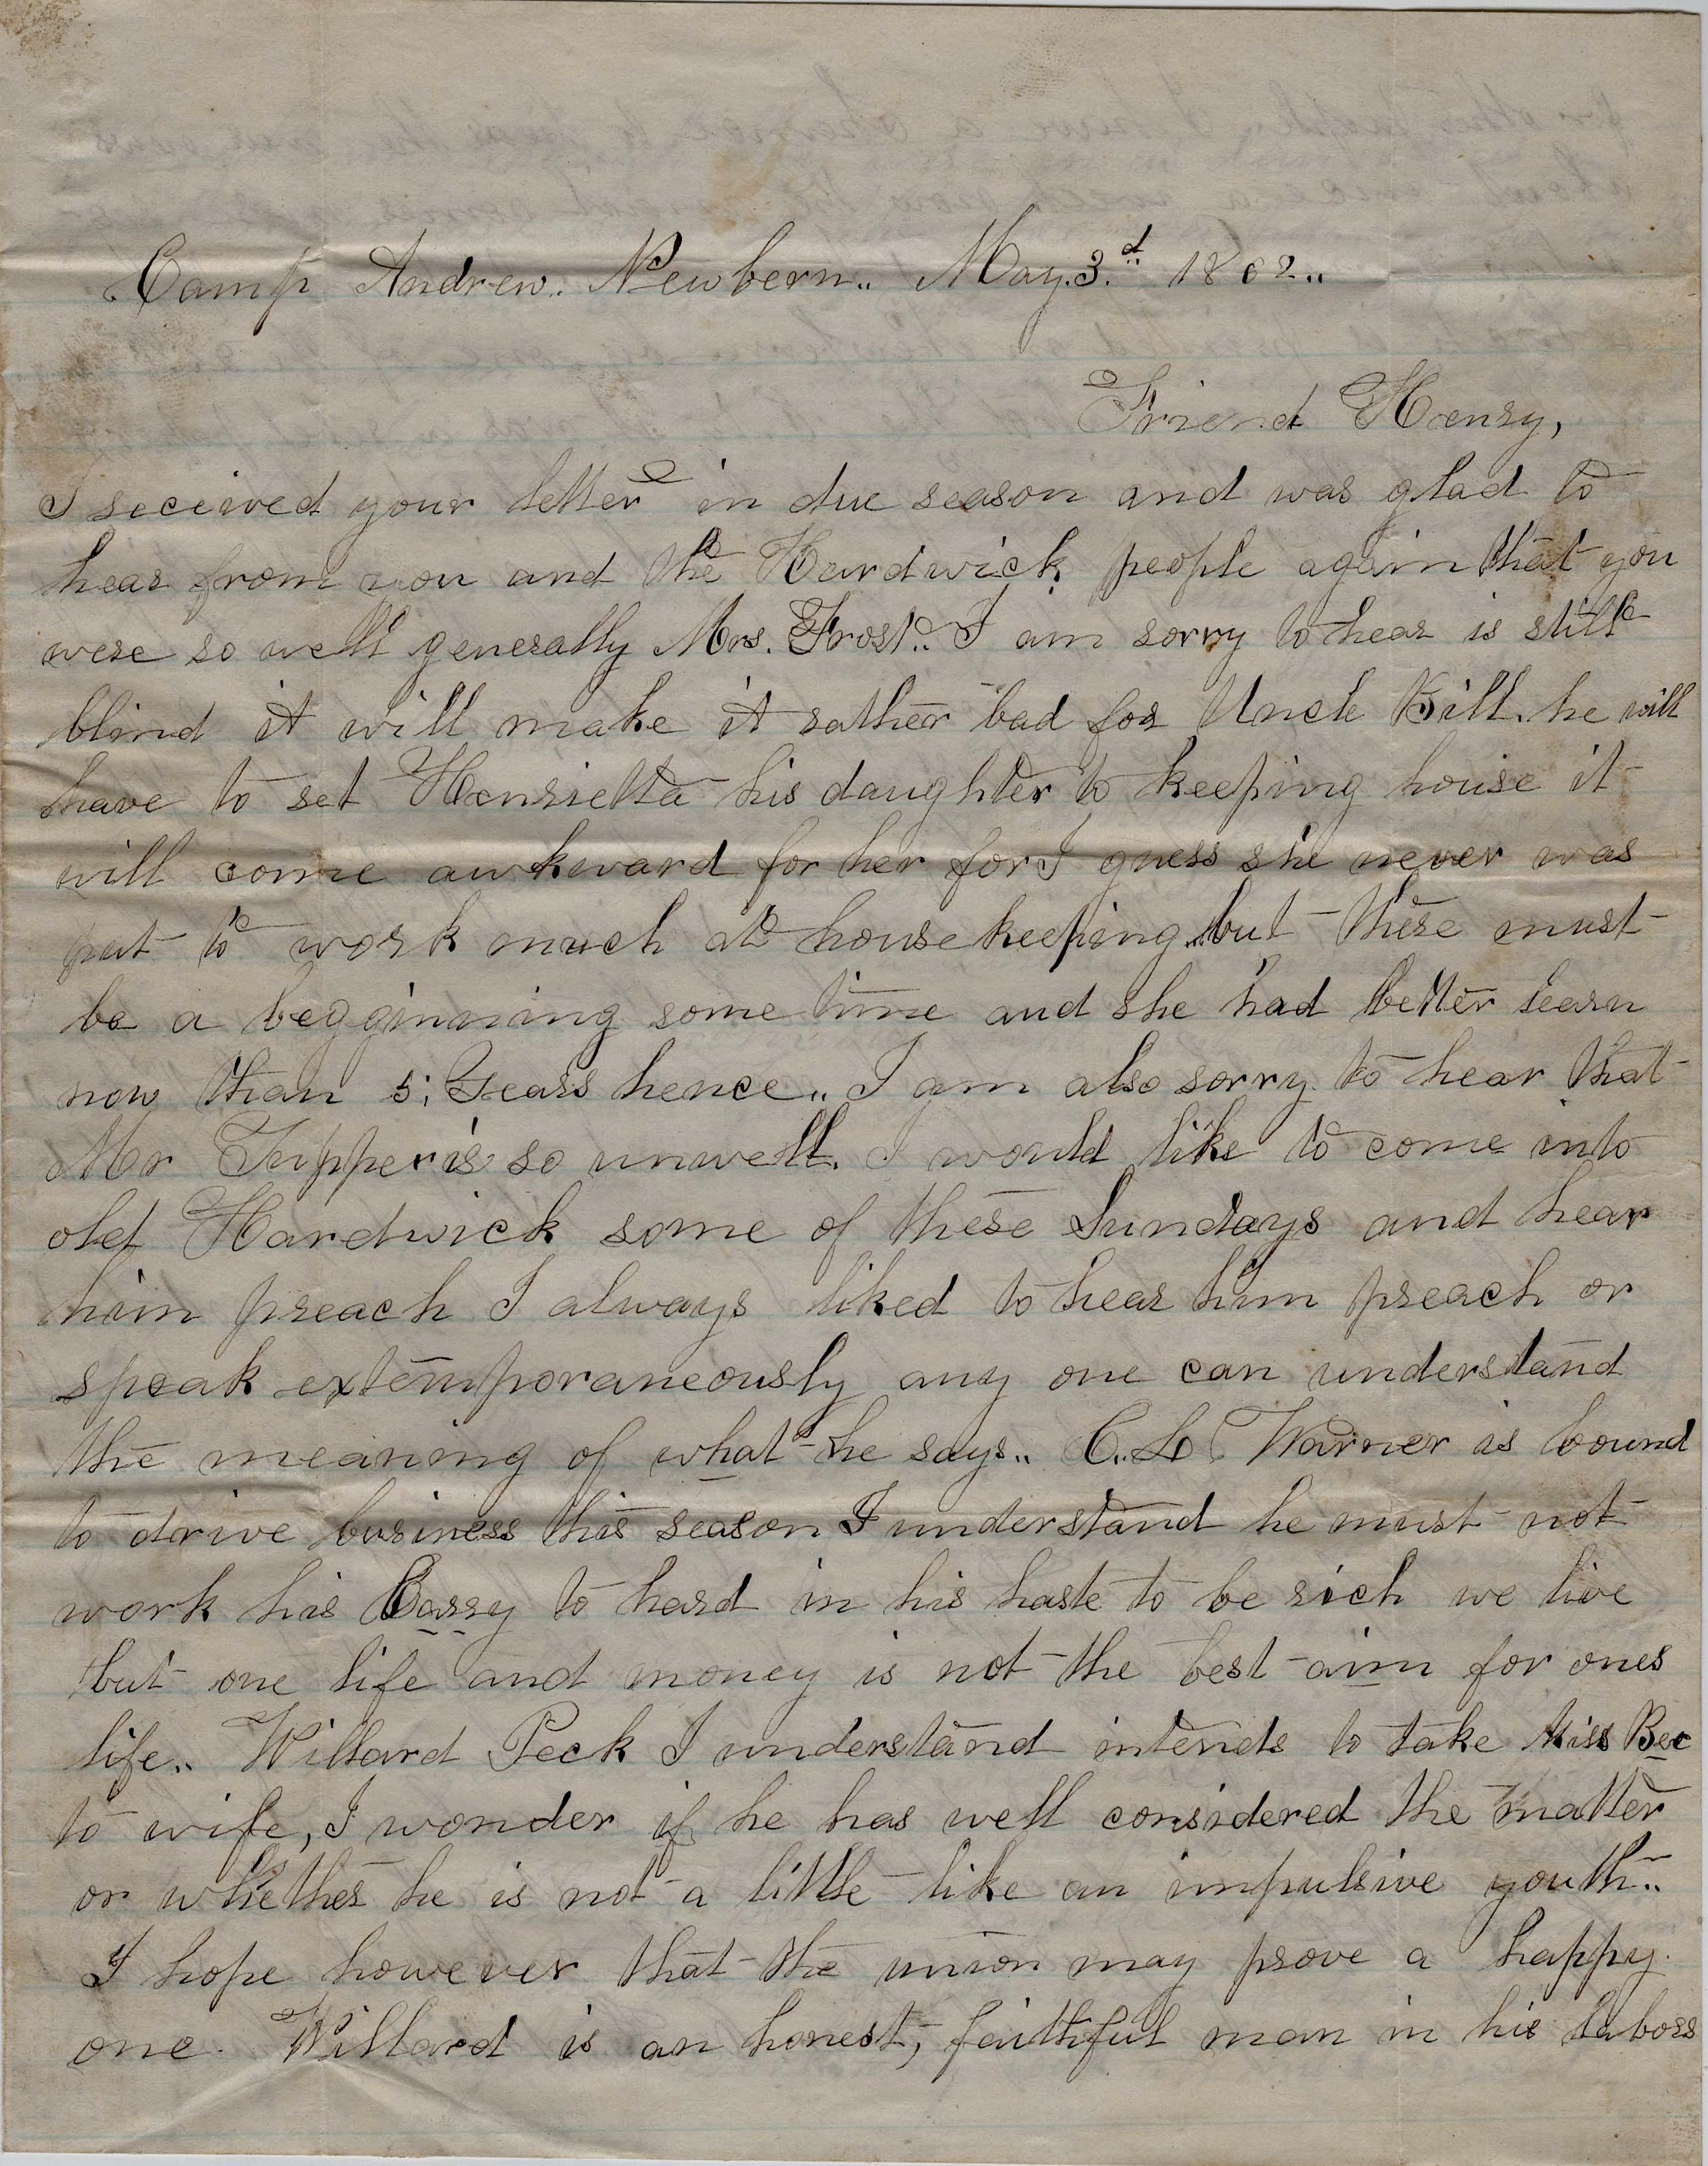 Camp Andrew. Newbern. May. 3.d 1862.
Friend Henry,
I received your letter in due season and was glad to
hear from you and the Hardwick people again that you
were so well generally Mrs. Frost. I am sorry to hear is still
blind it will make it rather bad for Uncle Bill. he will
have to set Henrietta his daughter to keeping house it
will come awkward for her for I guess she never was
put to work much at house keeping. but there must
be a begginning some time and she had better learn
now than 5; Years hence. I am also sorry to hear that
Mr Tupper is so unwell. I would like to come into
old Hardwick some of these Sundays and hear
him preach I always liked to hear him preach or
speak extemporaneously any one can understand
the meaning of what he says. C. L. Warner is bound
to drive business this season I understand he must not
work his to hard in his haste to be rich we live
but one life and money is not the best aim for ones
life. Willard Peck I understand intends to take Miss Bec
to wife, I wonder if he has well considered the matter
or whether he is not a little like an impulsive youth.
I hope however that the union may prove a happy
one. Willard is an honest, faithful man in his labors